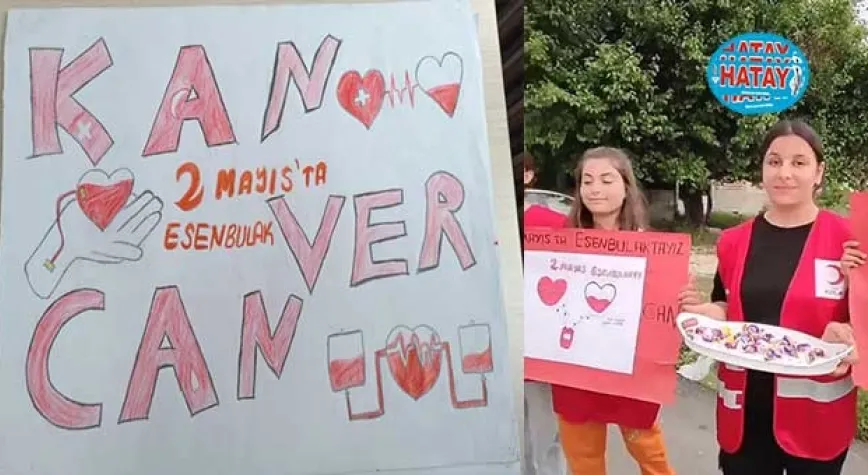 KAN
2 MAYIS'TA
ESENBULAK
VER
CAN
HATAY
HATAY
HATAY
MAYIS'TA ESENBULAKTAYIZ
2 MAYIS ESENBULAK
CAN